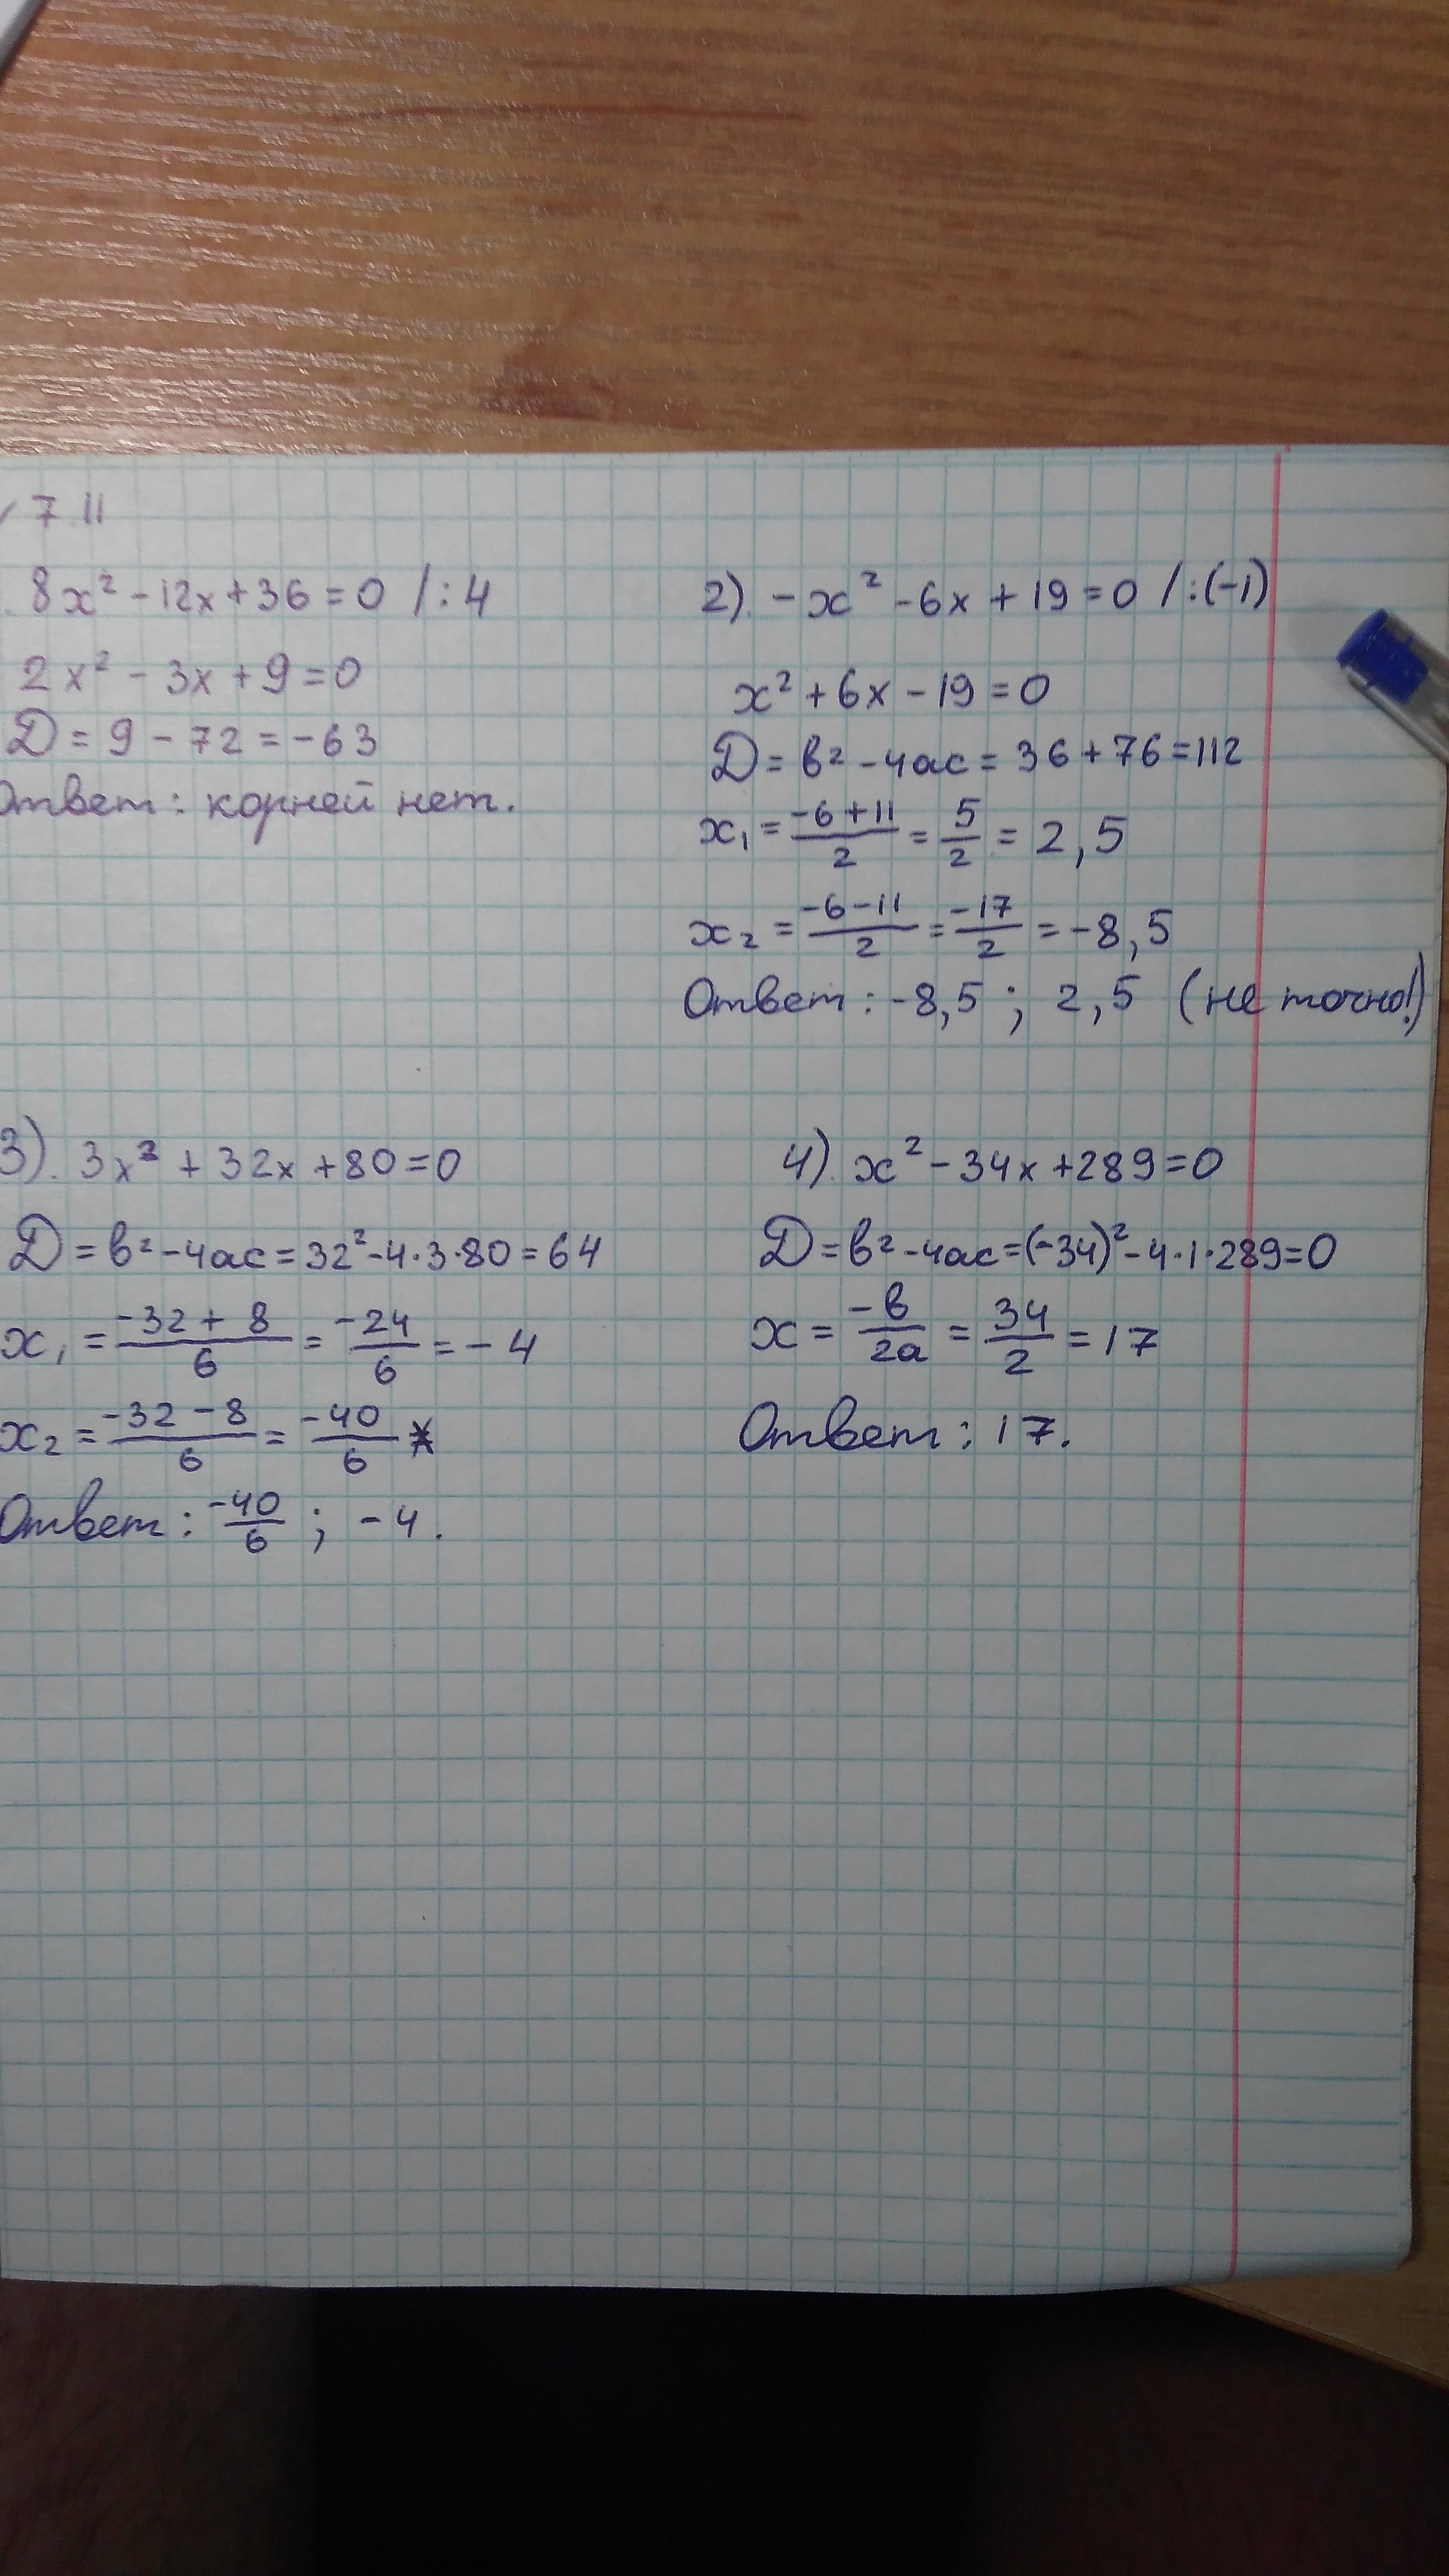 7.11
8x² - 12x + 36 = 0 /:4
2x² - 3x + 9 = 0
D = 9 - 72 = -63
Ответ: корней нет.
2). -x² - 6x + 19 = 0 /:(-1)
x² + 6x - 19 = 0
D = в² - 4ас = 36 + 76 = 112
x₁ = (-6 + 11)/2 = 5/2 = 2,5
x₂ = (-6 - 11)/2 = -17/2 = -8,5
Ответ: -8,5 ; 2,5 (не точно!)
3). 3x² + 32x + 80 = 0
D = в² - 4ас = 32² - 4·3·80 = 64
x₁ = (-32 + 8)/6 = -24/6 = -4
x₂ = (-32 - 8)/6 = -40/6
Ответ: -40/6 ; -4.
4). x² - 34x + 289 = 0
D = в² - 4ас = (-34)² - 4·1·289 = 0
x = -в/2а = 34/2 = 17
Ответ: 17.